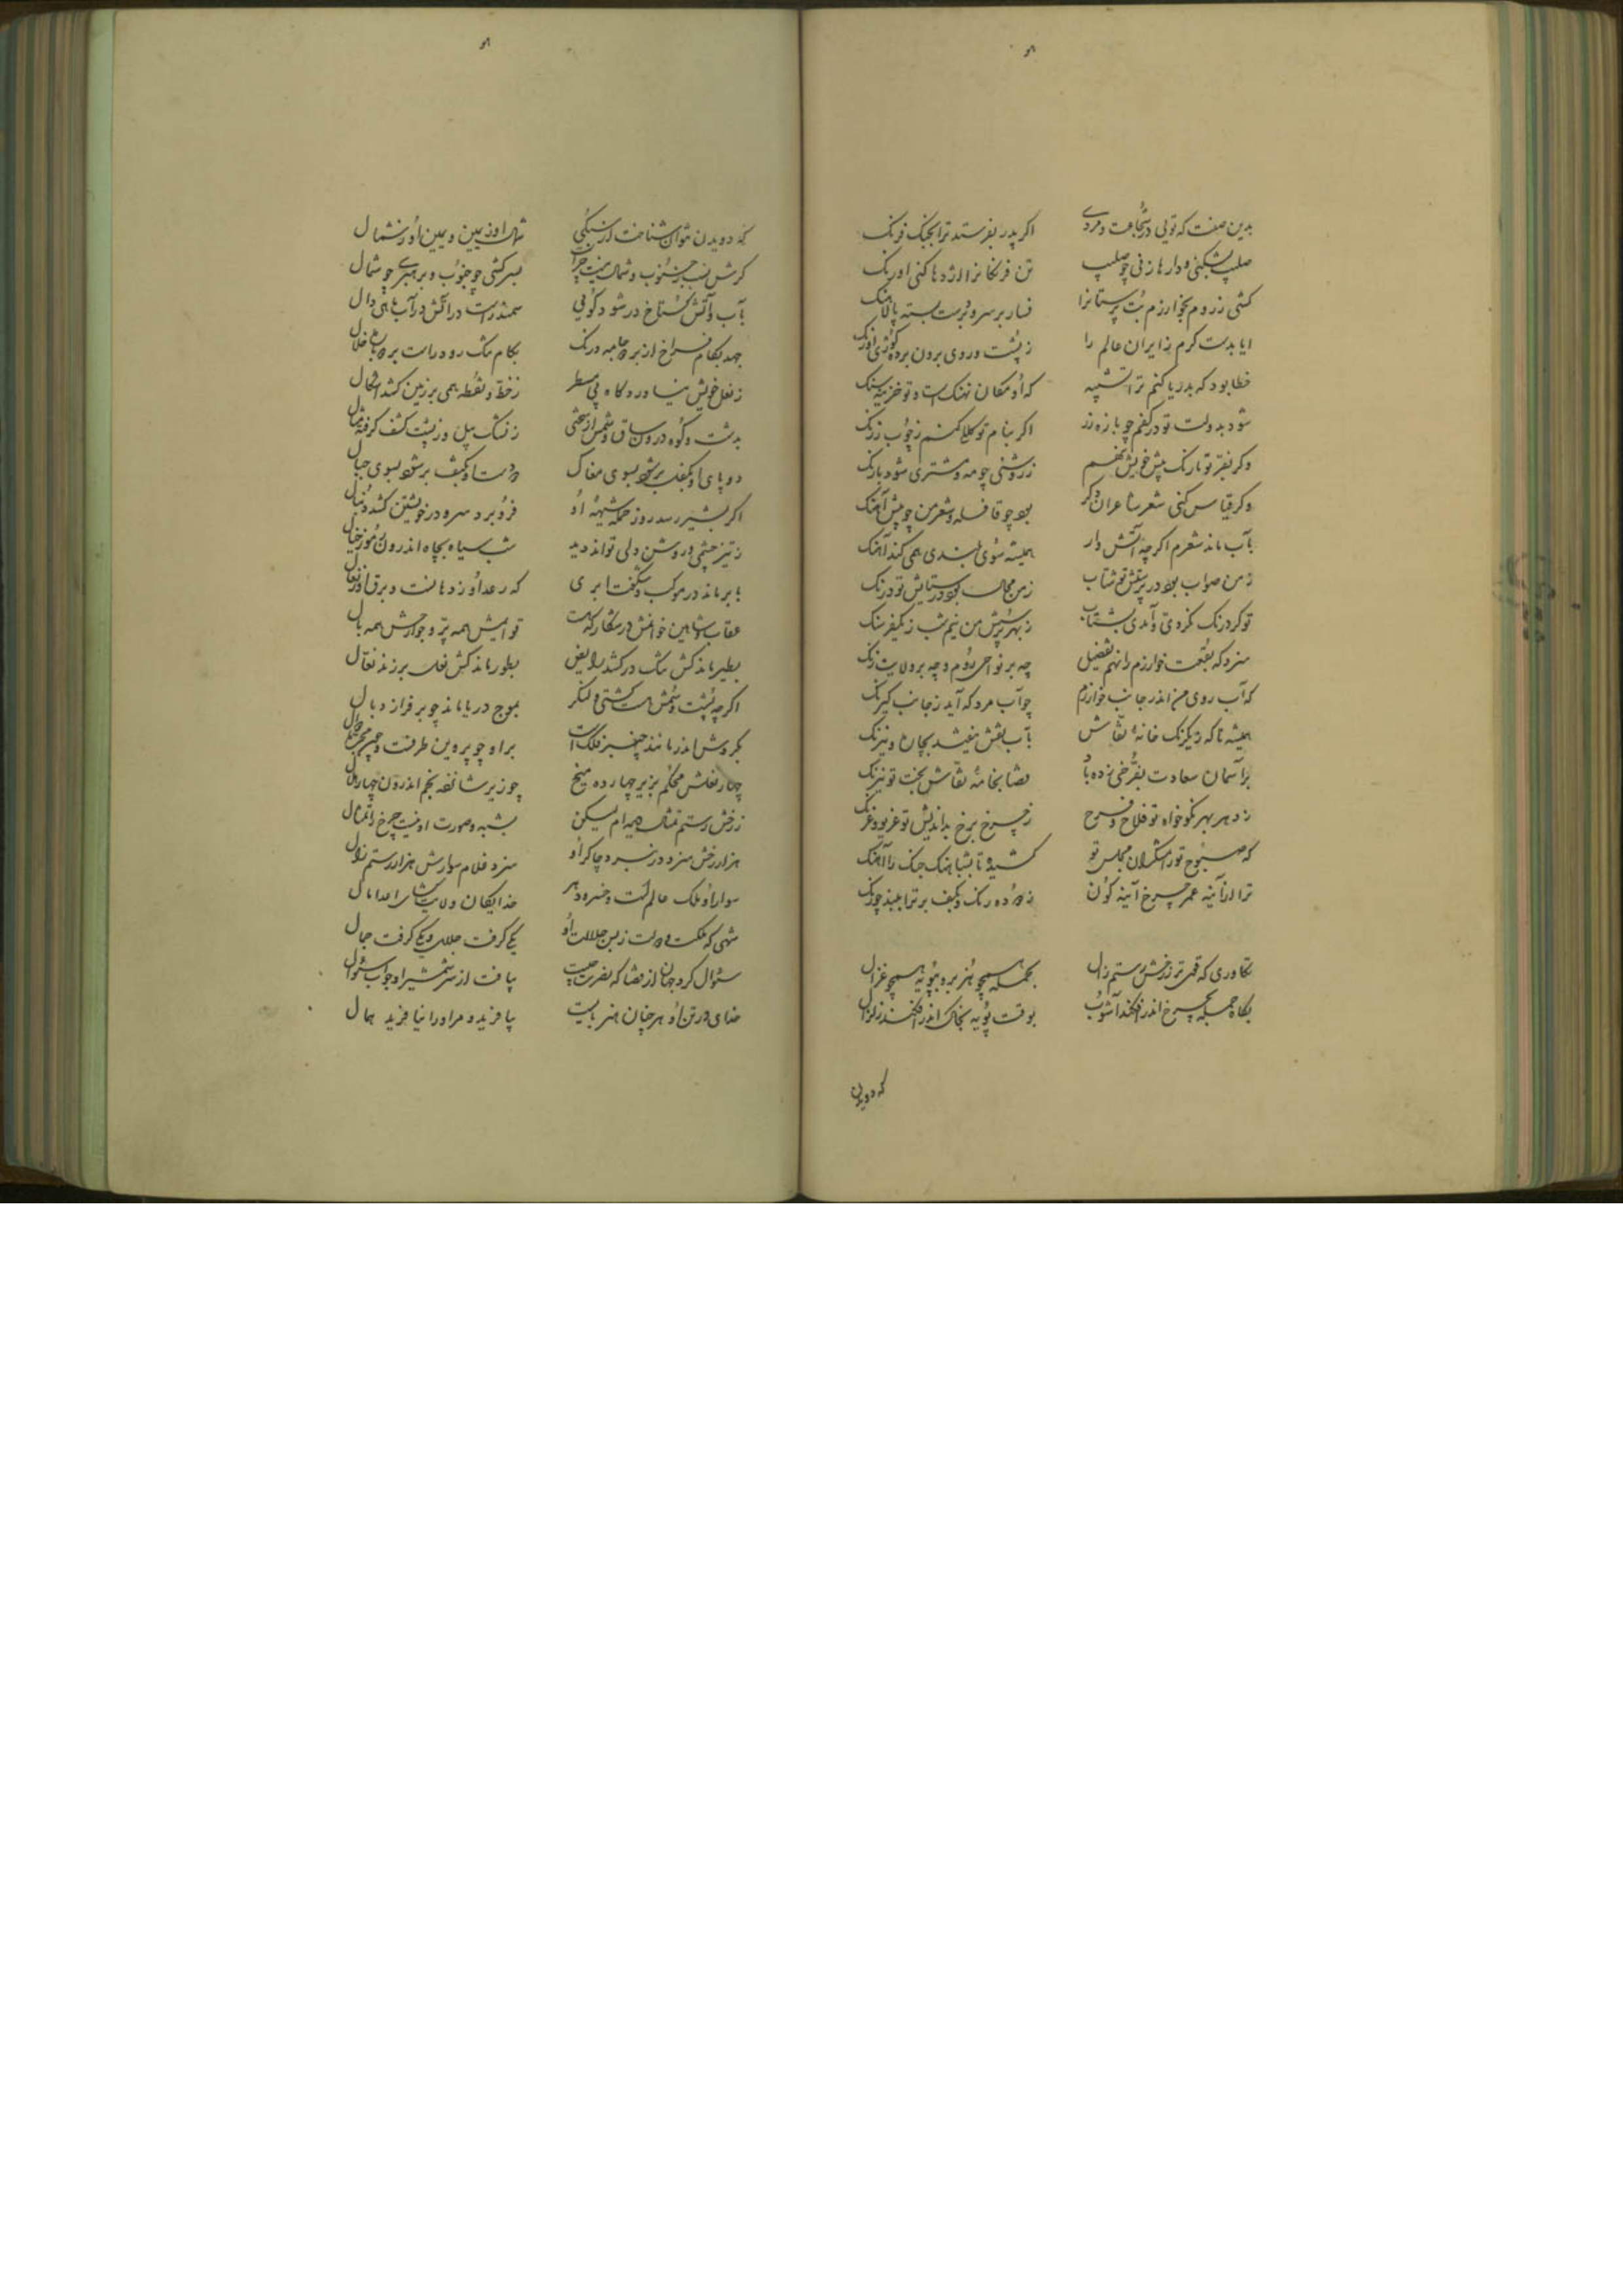 بدین صفت که تویی در شجاعت و مردی اگر پدر بفرستد ترا بجنگ فرنگ
صلیب بشکنی و دارها زنی چو صلیب تن فرنگانرا اژدها کنی اورنگ
کشی ز روم بخوارزم بت پرستانرا فسار بر سر و بر دست بسته پالاهنگ
ایا بدست کرم ز ایران عالم را ز پشت و روی برون برده کوژی
خطا بود که بدریا کنم ترا تشبیه که او مکان نهنگ است و تو خزینه سنگ
شود بدولت تو در کفم چو یازه زر اگر بنام تو کلک کنم ز چوب زرنگ
وگر بفر تو نارنگ پیش خویش نهم ز روشنی چو مه و مشتری شود نارنگ
وگر قیاس کنی شعر شاعران دگر بود چو قافله و شعر من چو پیش آهنگ
بآب ماند شعرم اگرچه آتش وار همیشه سوی بلندی همی کند آهنگ
ز من صواب بود در پرستش تو شتاب ز من محال بود در ستایش تو درنگ
تو کرد رنگ نکردی و آمدی بشتاب ز بهر پرسش من نیم شب ز یکفرسنگ
سزد که بقعت خوارزم را نهم تفضیل چه بر نواحی روم و چه بر ولایت زنگ
که آب روی من اندر جانب خوارزم چو آب مرد که آید ز جانب گیرنگ
همیشه تا که ز یکرنگ خامهٔ نقاش بآب نقش نبیند بجان و نیرنگ
بر آسمان سعادت بفرخی زده باد قضا بخامهٔ نقاش بخت تو نیرنگ
ز دهر بهر نکوخواه تو فلاح و فرح ز چرخ برخ بداندیش تو غریو و غرنگ
که صبوح تو رامشگران مجلس تو کشیده تا بشباهنگ چنگ را آهنگ
ترا در آینه عمر چرخ آینه گون ز دوده رنگ و بکف بر ترا نبید چو زنگ
تکاوری که قوی تر ز رخش رستم زال بحمله همچو هزبر و بپویه همچو غزال
بگاه حمله بچرخ اندر افکند آشوب بوقت پویه بخاک اندر افکند زلزال
که دویدن
که دویدن نتوان شناخت از سبکی شمال او ز یمین و یمین او ز شمال
گرش نسب ز جنوب و شمال نیست چرا بسرکشی چو جنوب و برهبری چو شمال
بآب و آتش گستاخ در شود گویی سمندر است در آتش در آب ماهی وال
جهد بکام فراخ از بر جامه درنگ بکام تنگ رود راست بر
ز نعل خویش بیاورد گاه بی مسطر ز خط و نقطه همی بر زمین کشد اشکال
بدشت و کوه درون ساق و سمش از سختی ز نسک پیل و ز پشت کشف گرفته مثال
دو پای او بکفل برشود بسوی مغاک دو دست او بکتف برشود بسوی جبال
اگر بشیر رسد روز حمله شیههٔ او فرو برد سر و در خویشتن کشد دنبال
ز تیز چشمی و روشن دلی تواند دید شب سیاه بچاه اندرون ز مور خیال
بابر ماند در موکب و شگفت ابری که رعد او ز دهانست و برق او ز نعال
عقاب و شاهین خوانمش در شکار گهت قوایمش همه پر و جوارحش همه بال
بطیر ماند کش تنگ درکشد رایض بطور ماند کش نعل برزند نعال
اگرچه پشت و سمش هست کشتی و لنگر بموج دریا ماند چو بر فراز و بال
بگردش اندر مانند چنبر فلک است بر او چو پروین طرفست و چون مجره دوال
چهار نعلش محکم بزیر چهارده میخ چو زیر شانزده نجم اندرون چهار هلال
ز رخش رستم تمثال دیده ام لیکن بشبه و صورت او نیست چرخ را تمثال
هزار رخش سزد در نبرد چاکر او سزد غلام سوارش هزار رستم زال
سوار او ملک عالم است و خسرو دهر خدایگان ولایت گشای اعدا مال
شهی که ملکت و دولت ز بس جلالت او یکی گرفت جلال و یکی گرفت جمال
سئوال کرد جهان از قضا که نصرت چیست بیافت از سر شمشیر او جواب سئوال
خدای در تن او هر چنان هنر بایست بیافرید و مر او را نیافرید همال